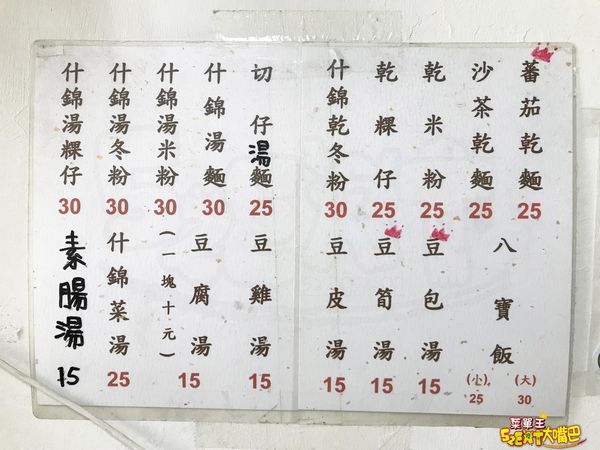 蕃茄乾麵
25
沙茶乾麵
25
乾米粉
25
乾粿仔
25
什錦乾冬粉
30
切仔湯麵
25
什錦湯麵
30
什錦湯米粉
30
什錦湯冬粉
30
什錦湯粿仔
30
八寶飯
(大)
30
(小)
25
豆包湯
15
豆筍湯
15
豆皮湯
15
豆雞湯
15
豆腐湯
(一塊十元)
15
什錦菜湯
25
素腸湯
15
菜單王
大嘴巴